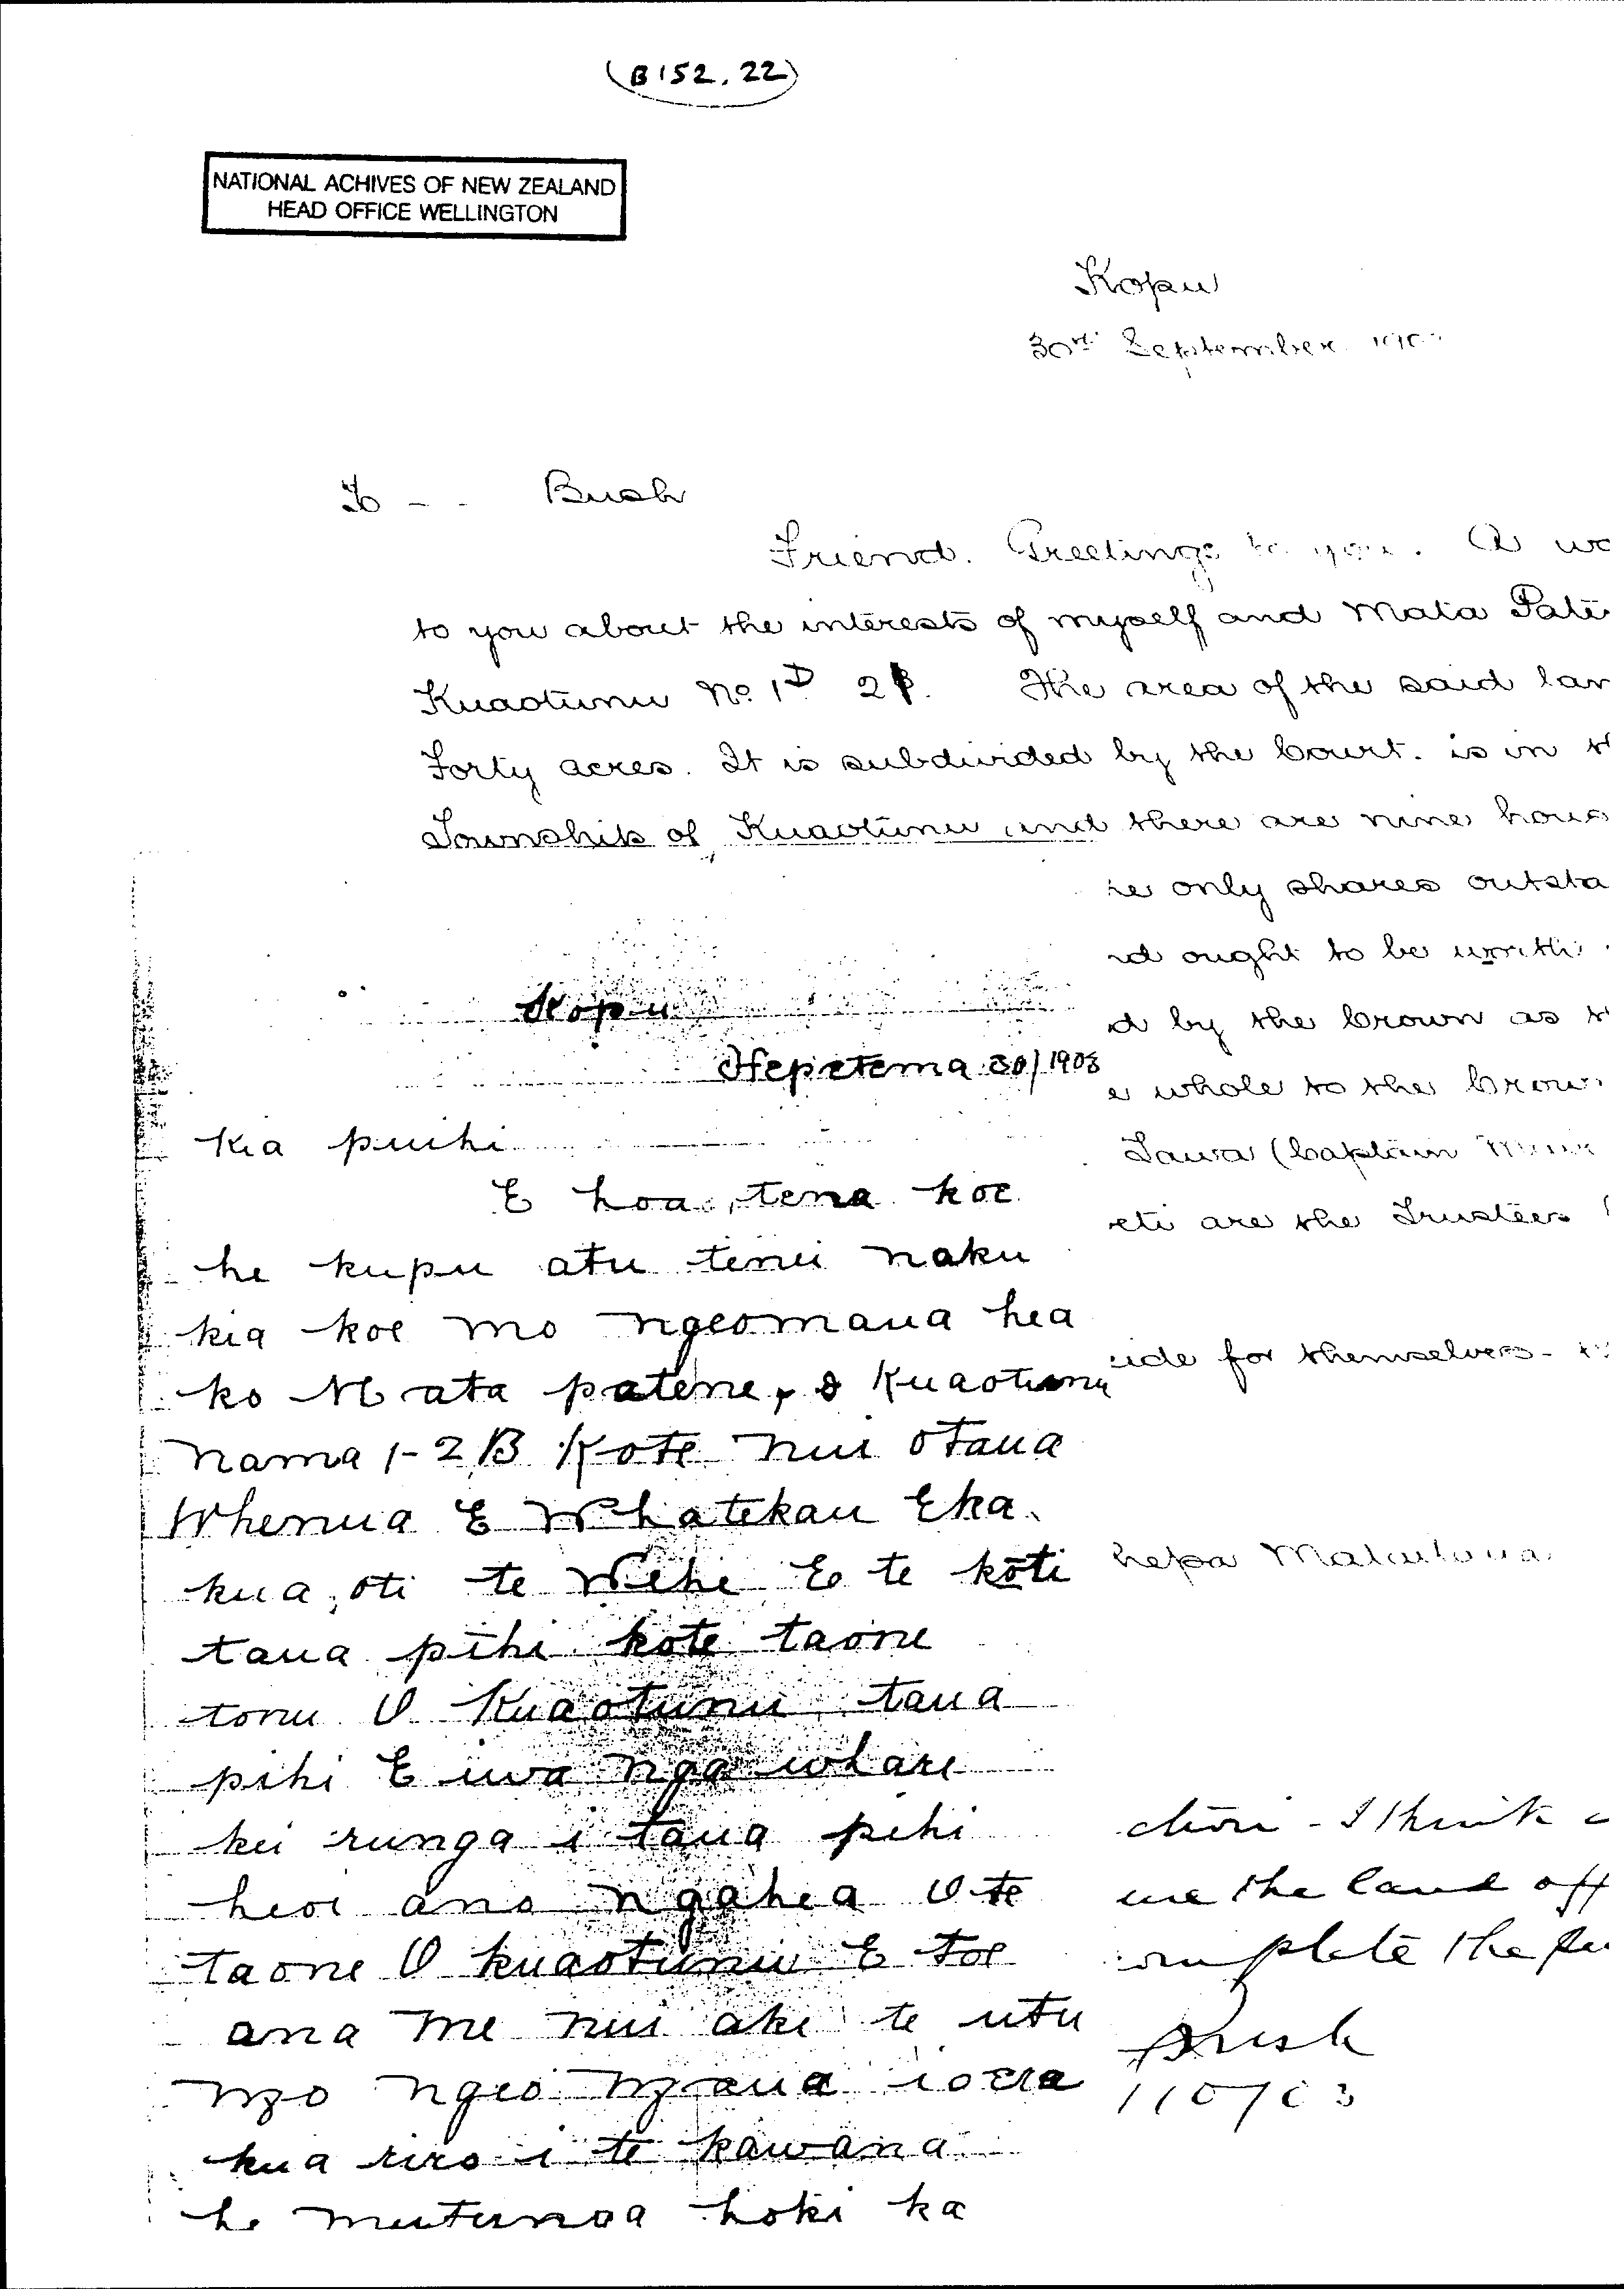 (B152.22)
NATIONAL ACHIVES OF NEW ZEALAND
HEAD OFFICE WELLINGTON
Kopu
30th September
To - - Bush
Friend. Greetings to you. A wo
to you about the interests of myself and Mata Pate
Kuaotunu No. 1D 2B. The area of the said lan
Forty acres. It is subdivided by the Court. is in th
Township of Kuaotunu and there are nine hous
he only shares outsta
nd ought to be worth
d by the Crown as th
e whole to the Crow
Tawa (Captain
eti are the Trustees
ide for themselves -
hepa
ction - I think
me the land off
omplete the pu
Bush
1/10/03
Kopu
Hepetema 30/1903
Kia puihi
E hoa, tena koe
he kupu atu tenei naku
kia koe mo ngeomaua hea
ko Mata patene, o Kuaotunu
nama 1-2B Kote nui otaua
Whenua E Whatekau Eka.
kua oti te Wehe E te koti
taua pihi kote taone
tonu O Kuaotunu taua
pihi E iwa nga whare
kei runga i taua pihi
heoi ano ngahea O te
taone O kuaotunu E toe
ana me nui ake te utu
mo ngeo maua ioera
kua riro i te kawana
he mutunga hoki ka